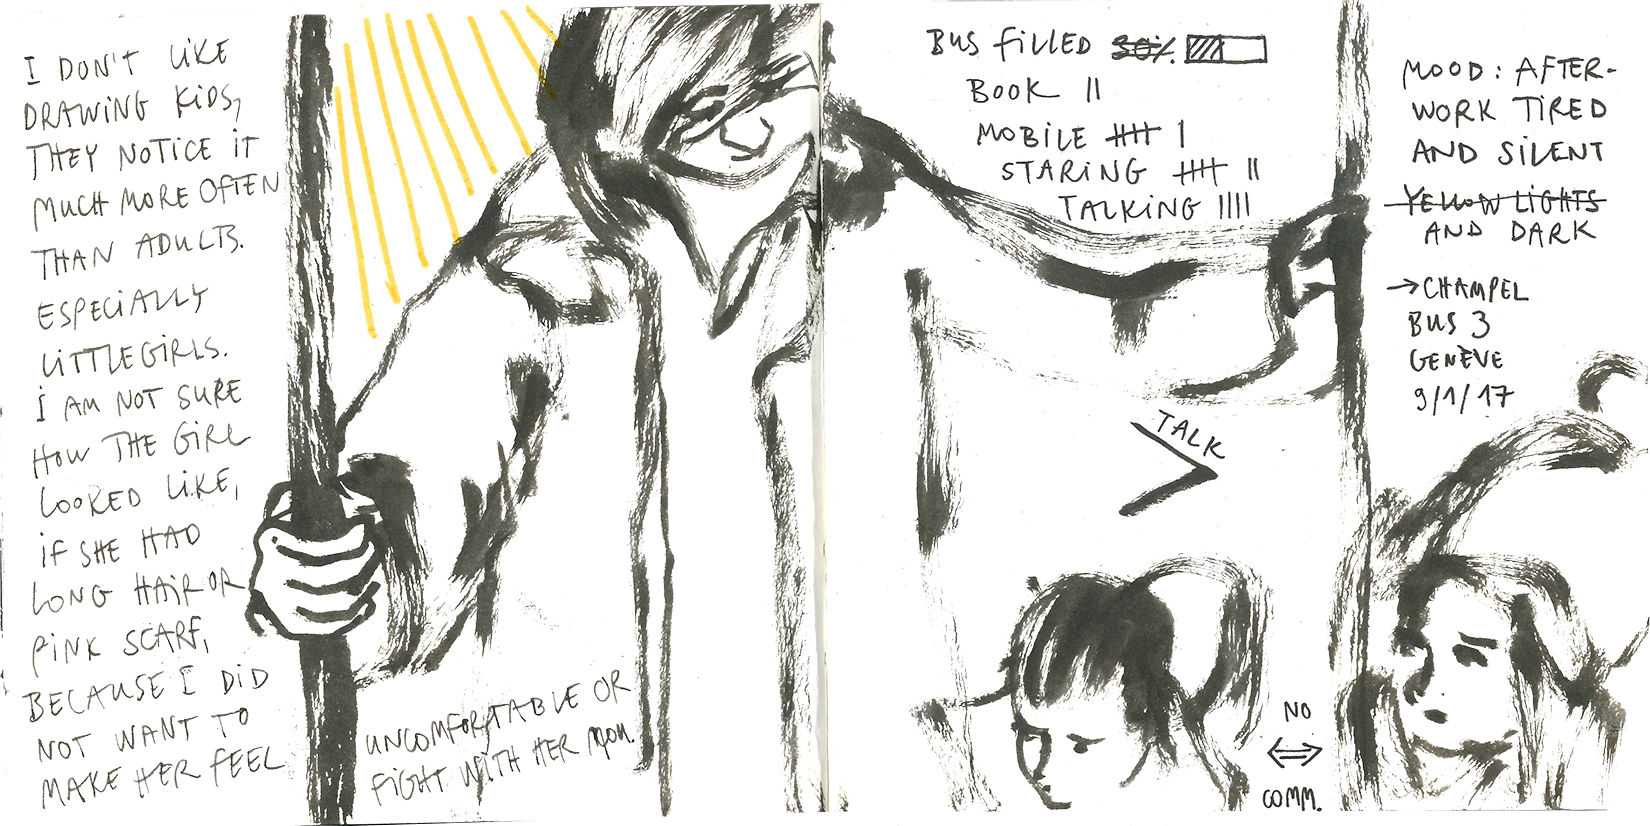 I DON'T LIKE
DRAWING KIDS,
THEY NOTICE IT
MUCH MORE OFTEN
THAN ADULTS.
ESPECIALLY
LITTLE GIRLS.
I AM NOT SURE
HOW THE GIRL
LOOKED LIKE,
IF SHE HAD
LONG HAIR OR
PINK SCARF,
BECAUSE I DID
NOT WANT TO
MAKE HER FEEL
UNCOMFORTABLE OR
FIGHT WITH HER MOM.
BUS FILLED 30%
BOOK ||
MOBILE 卌 |
STARING 卌 ||
TALKING ||||
TALK
NO
⇔
COMM.
MOOD: AFTER-
WORK TIRED
AND SILENT
YELLOW LIGHTS
AND DARK
→ CHAMPEL
BUS 3
GENÈVE
9/1/17